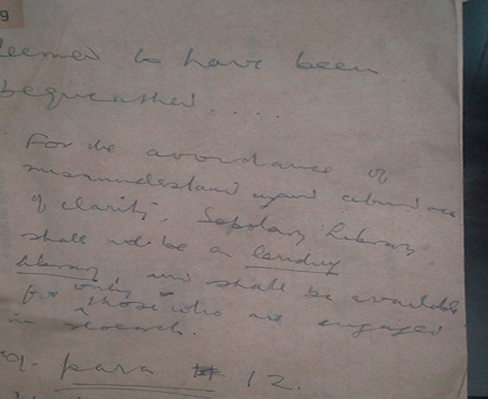 9
deemed to have been
bequeathed....
For the avoidance of
misunderstand and abundance
of clarity, Library
shall not be a lending
library, and shall be available
only for those who are engaged
in research.
9. para 12.